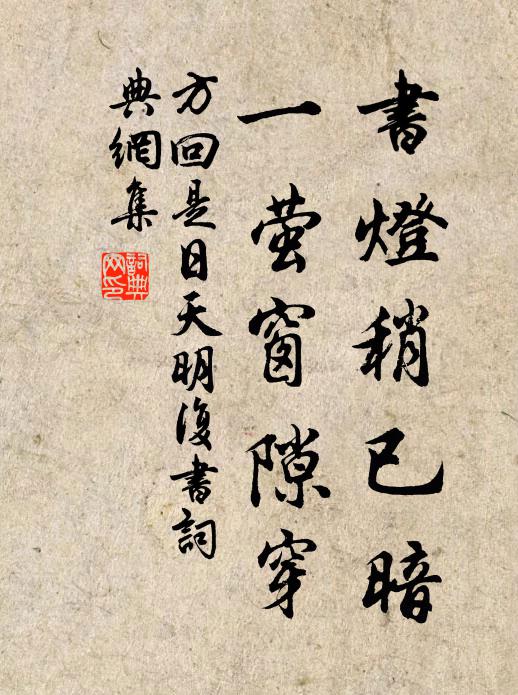 書燈稍已暗
一萤窗隙穿
方回是日天明復書詞
典網集
詞典網印